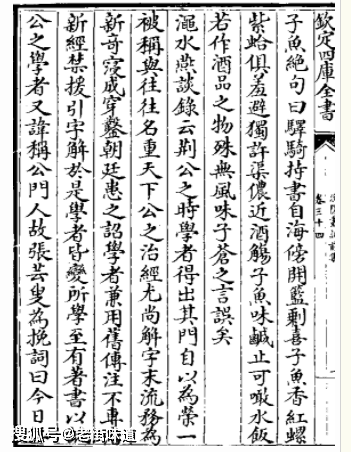 欽定四庫全書
卷三十四
子魚絕句曰驛騎持書自海傍開籃剩喜子魚香紅螺
紫蛤俱羞避獨許渠儂近酒觴子魚味鹹止可噉水飯
若作酒品之物殊無風味子蒼之言誤矣
澠水燕談錄云荆公之時學者得出其門自以為榮一
被稱與往往名重天下公之治經尤尚解字末流務為
新奇寖成穿鑿朝廷患之詔學者兼用舊傳注不專
新經禁援引字解於是學者皆變所學至有著書以
公之學者又諱稱公門人故張芸叟為挽詞曰今日
搜狐号@老街味道